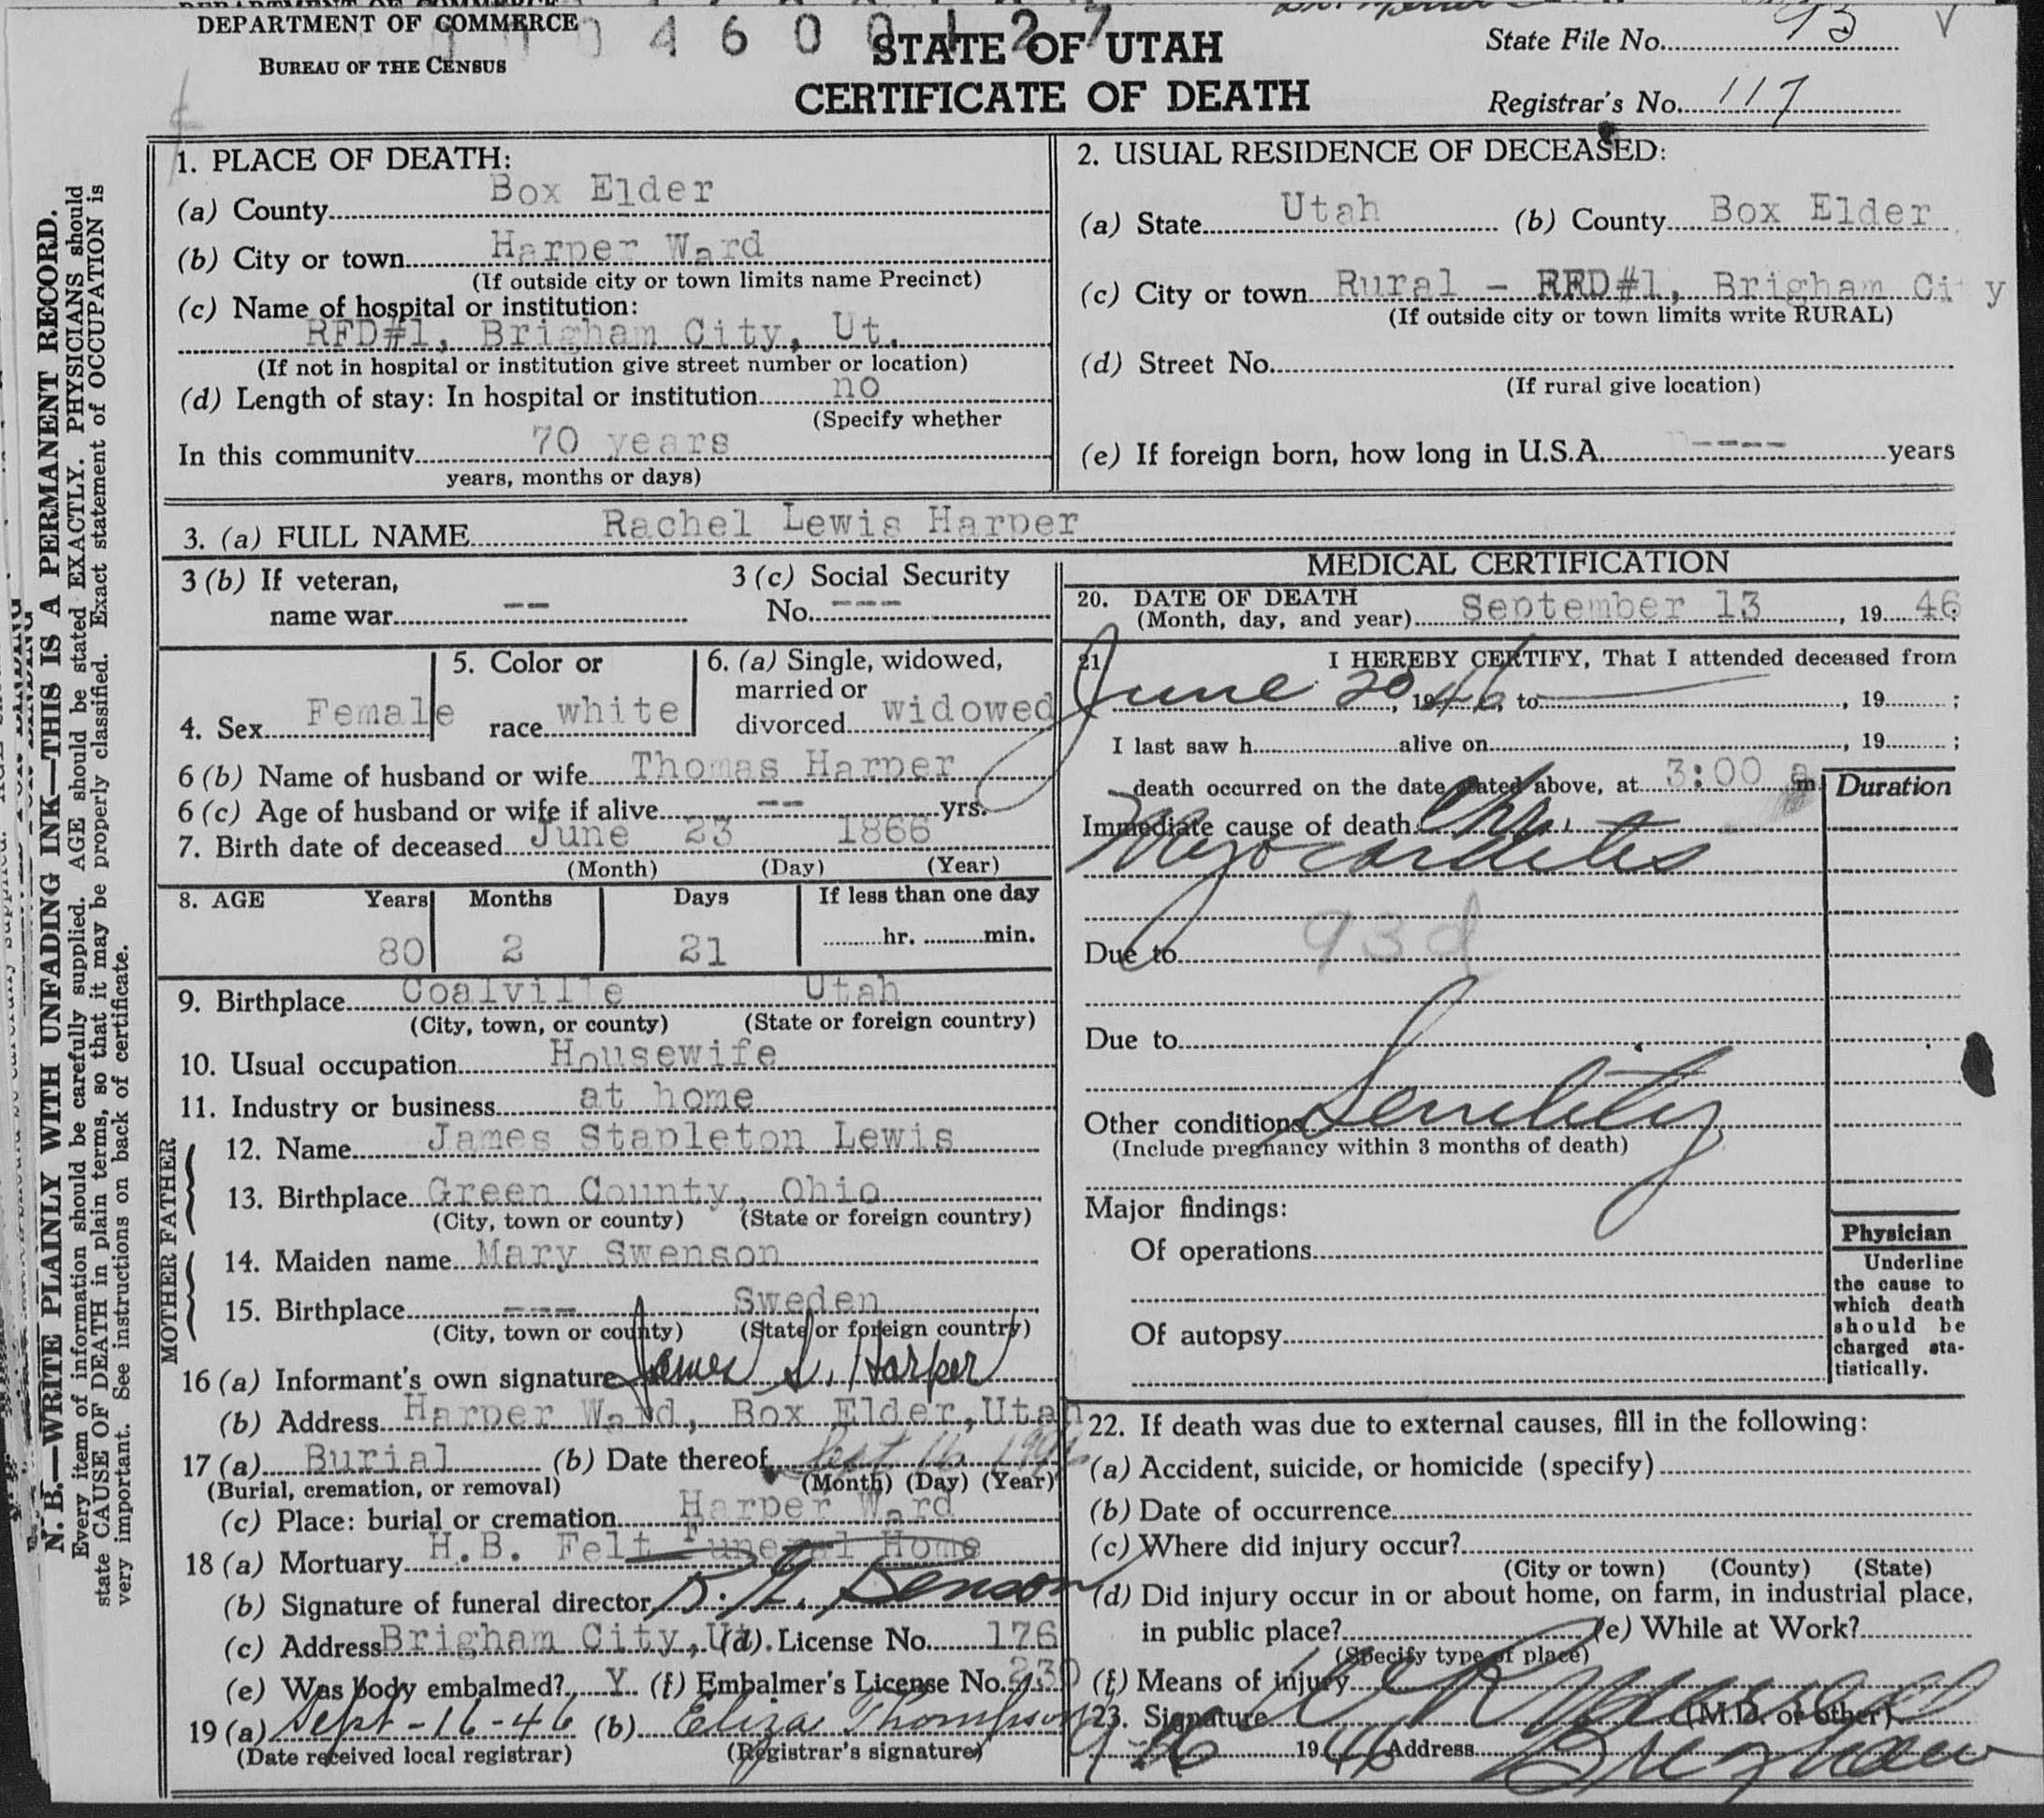 DEPARTMENT OF COMMERCE
BUREAU OF THE CENSUS
STATE OF UTAH
CERTIFICATE OF DEATH
State File No. 93
Registrar's No. 117
N. B.—WRITE PLAINLY WITH UNFADING INK—THIS IS A PERMANENT RECORD.
Every item of information should be carefully supplied. AGE should be stated EXACTLY. PHYSICIANS should
state CAUSE OF DEATH in plain terms, so that it may be properly classified. Exact statement of OCCUPATION is
very important. See instructions on back of certificate.
1. PLACE OF DEATH:
(a) County Box Elder
(b) City or town Harper Ward
(If outside city or town limits name Precinct)
(c) Name of hospital or institution:
RFD#1, Brigham City, Ut.
(If not in hospital or institution give street number or location)
(d) Length of stay: In hospital or institution no
(Specify whether
In this community 70 years
years, months or days)
2. USUAL RESIDENCE OF DECEASED:
(a) State Utah (b) County Box Elder
(c) City or town Rural - RFD#1, Brigham City
(If outside city or town limits write RURAL)
(d) Street No.
(If rural give location)
(e) If foreign born, how long in U.S.A. ---- years
3. (a) FULL NAME Rachel Lewis Harper
3 (b) If veteran,
name war --
3 (c) Social Security
No. ---
4. Sex Female
5. Color or
race white
6. (a) Single, widowed,
married or
divorced widowed
6 (b) Name of husband or wife Thomas Harper
6 (c) Age of husband or wife if alive -- yrs.
7. Birth date of deceased June 23 1866
(Month) (Day) (Year)
8. AGE Years Months Days If less than one day
80 2 21 hr. min.
9. Birthplace Coalville Utah
(City, town, or county) (State or foreign country)
10. Usual occupation Housewife
11. Industry or business at home
FATHER
12. Name James Stapleton Lewis
13. Birthplace Green County, Ohio
(City, town or county) (State or foreign country)
MOTHER
14. Maiden name Mary Swenson
15. Birthplace --- Sweden
(City, town or county) (State or foreign country)
16 (a) Informant's own signature James L. Harper
(b) Address Harper Ward, Box Elder, Utah
17 (a) Burial (b) Date thereof Sept 16 1946
(Burial, cremation, or removal) (Month) (Day) (Year)
(c) Place: burial or cremation Harper Ward
18 (a) Mortuary H.B. Felt Funeral Home
(b) Signature of funeral director
(c) Address Brigham City, Ut (d) License No. 176
(e) Was body embalmed? Y (f) Embalmer's License No. 230
19 (a) Sept-16-46 (b) Eliza Thompson
(Date received local registrar) (Registrar's signature)
MEDICAL CERTIFICATION
20. DATE OF DEATH
(Month, day, and year) September 13, 19 46
21. I HEREBY CERTIFY, That I attended deceased from
June 20, 1946, to , 19 ;
I last saw h alive on , 19 ;
death occurred on the date stated above, at 3:00 a m
Duration
Immediate cause of death Chr.
Myocarditis
Due to 93d
Due to
Other conditions Senility
(Include pregnancy within 3 months of death)
Major findings:
Of operations
Of autopsy
Physician
Underline
the cause to
which death
should be
charged sta-
tistically.
22. If death was due to external causes, fill in the following:
(a) Accident, suicide, or homicide (specify)
(b) Date of occurrence
(c) Where did injury occur?
(City or town) (County) (State)
(d) Did injury occur in or about home, on farm, in industrial place,
in public place? (e) While at Work?
(Specify type of place)
(f) Means of injury
23. Signature (M.D. or other)
9/16 1946 Address Brigham